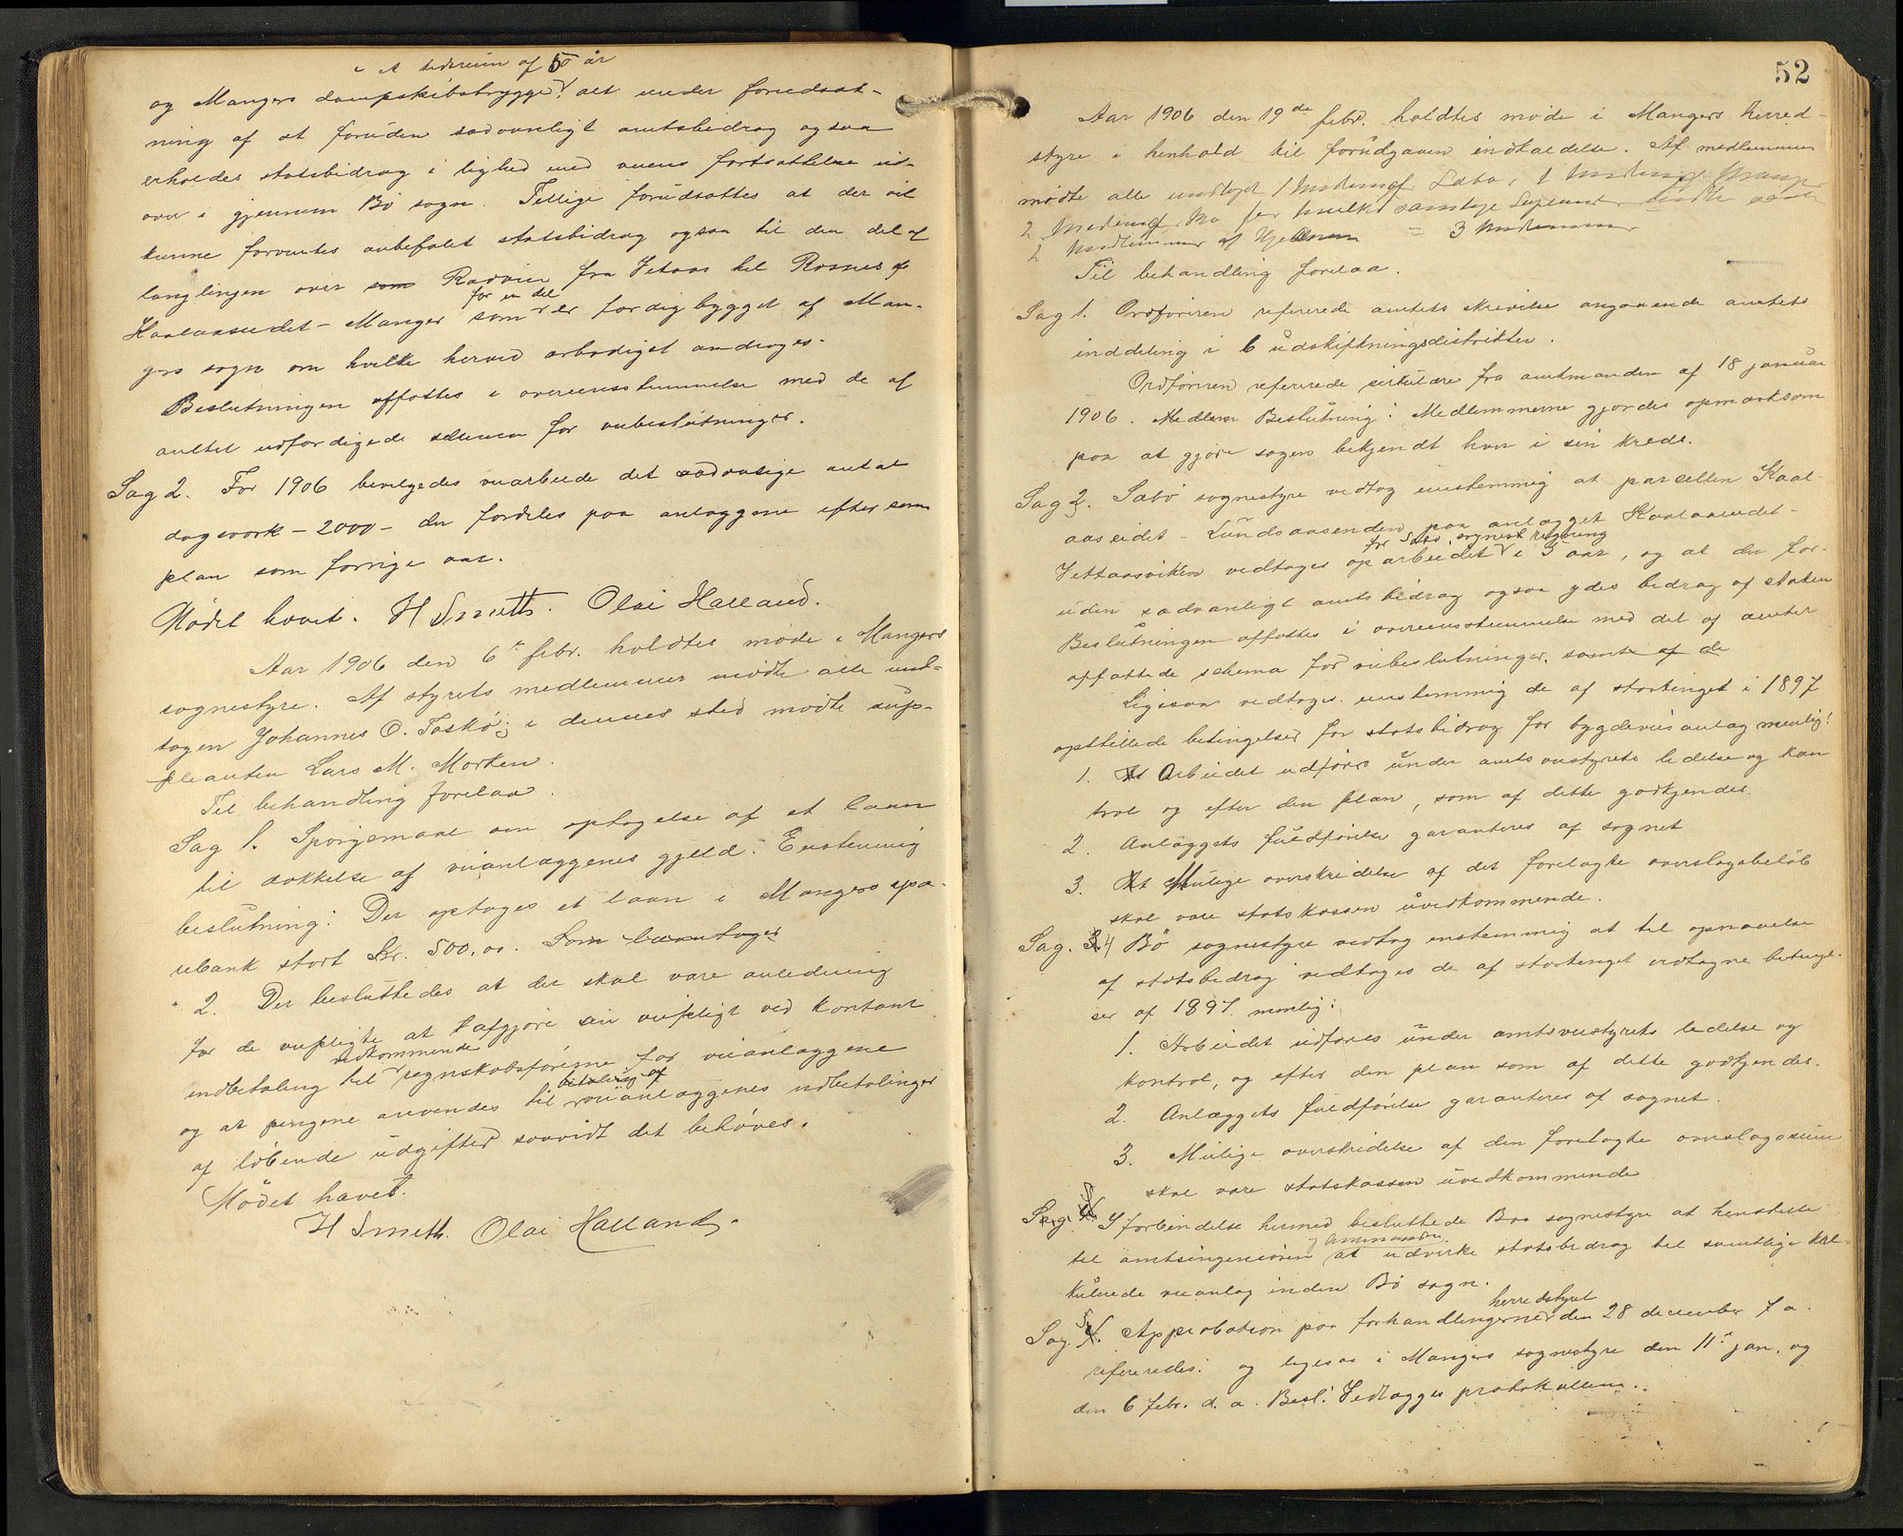 i et tidsrum af 5 år
og Mangers dampskibsbrygge, alt under forudsæt-
ning af at foruden sædvanligt amtsbidrag ogsaa
erholdes statsbidrag i lighed med veiens fortsættelse ud-
over i gjennem Bø sogn. Tillige forudsættes at der vil
kunne forventes anbefalet statsbidrag ogsaa til den del af
langlinjen over Radøien fra Vetaas til Rosnes
Kaalaaseidet - Manger som for en del er færdigbygget af Man-
gers sogn om hvilke herved ærbødigst andrages.
Beslutningen affattes i overensstemmelse med de af
amtet udfærdigede schema for veibeslutninger.
Sag 2. For 1906 bevilgedes veiarbeide det sædvanlige antal
dagsverk - 2000 - der fordeles paa anlæggene efter samme
plan som forrige aar.
Mødet hævet. H Smith. Olai Halland.
Aar 1906 den 6te febr. holdtes møde i Mangers
sognestyre. Af styrets medlemmer mødte alle und-
tagen Johannes O. Toskø; i dennes sted mødte sup-
pleanten Lars M. Morken.
Til behandling forelaa.
Sag 1. Spørgsmaal om optagelse af et laan
til dækkelse af veianlæggenes gjeld. Enstemmig
beslutning: Der optages et laan i Mangers spa-
rebank stort Kr. 500,00. Som
" 2. Der besluttedes at der skal være anledning
for de veipligte at afgjøre sin veipligt ved kontant
indbetaling til vedkommende regnskabsførerne for veianlæggene
og at pengene anvendes til betaling af veianlæggenes udbetalinger
af løbende udgifter saavidt det behøves.
Mødet hævet.
H Smith. Olai Halland.
52
Aar 1906 den 19de febr. holdtes møde i Mangers herred-
styre i henhold til forudgaaen indkaldelse. Af medlemmer
mødte alle undtaget 1 Medlem af Sæbø, 1 Medlem af Manger
2 Medlem af Bø for hvilke samtlige Supleanter mødte
2 Medlemmer af Hjelmen = 3 Medlemmer
Til behandling forelaa.
Sag 1. Ordføreren refererede amtets skrivelse angaaende amtets
inddeling i 6 udskiftningsdistrikter.
Ordføreren refererede sirkulære fra amtmanden af 18 januar
1906. Beslutning: Medlemmerne gjordes opmærksom
paa at gjøre sagen bekjendt hver i sin kreds.
Sag 2. Sæbø sognestyre vedtog enstemmig at parcellen Kaal-
aaseidet - Lundsaasenden paa anlægget Kaalaaseidet -
Vettaasviken vedtages oparbeidet for Sæbø sogns regning i 5 aar, og at der for-
uden sædvanligt amtsbidrag ogsaa ydes bidrag af staten
Beslutningen affattes i overensstemmelse med det af amtet
affattede schema for veibeslutninger. samt af de
Ligesaa vedtages enstemmig de af stortinget i 1897
opstillede betingelser for statsbidrag for bygdeveisanlæg nemlig:
1. At Arbeidet udføres under amtsveistyrets ledelse og kon
trol og efter den plan, som af dette godkjendes.
2. Anlæggets fuldførelse garanteres af sognet
3. At Mulige overskridelse af det forelagte overslagsbeløb
skal være statskassen uvedkommende.
Sag. 4 Bø sognestyre vedtog enstemmig at til opnaaelse
af statsbidrag vedtages de af stortinget vedtagne betingel-
ser af 1897 nemlig:
1. Arbeidet udføres under amtsveistyrets ledelse og
kontrol, og efter den plan som af dette godkjendes.
2. Anlæggets fuldførelse garanteres af sognet.
3. Mulige overskridelse af den forelagte overslagssum
skal være statskassen uvedkommende
Sag. I forbindelse hermed besluttede Bøo sognestyre at henstille
til amtsingeniøren og Amtmanden at udvirke statsbidrag til samtlige kal-
kulerede veianlæg inden Bø sogn.
Sag 5. Approbation paa forhandlingerne herredstyret den 28 december f. a.
refereredes. og ligesaa i Mangers sognestyre den 11te jan. og
den 6 febr. d. a. Besl: Vedlægges protokollen.